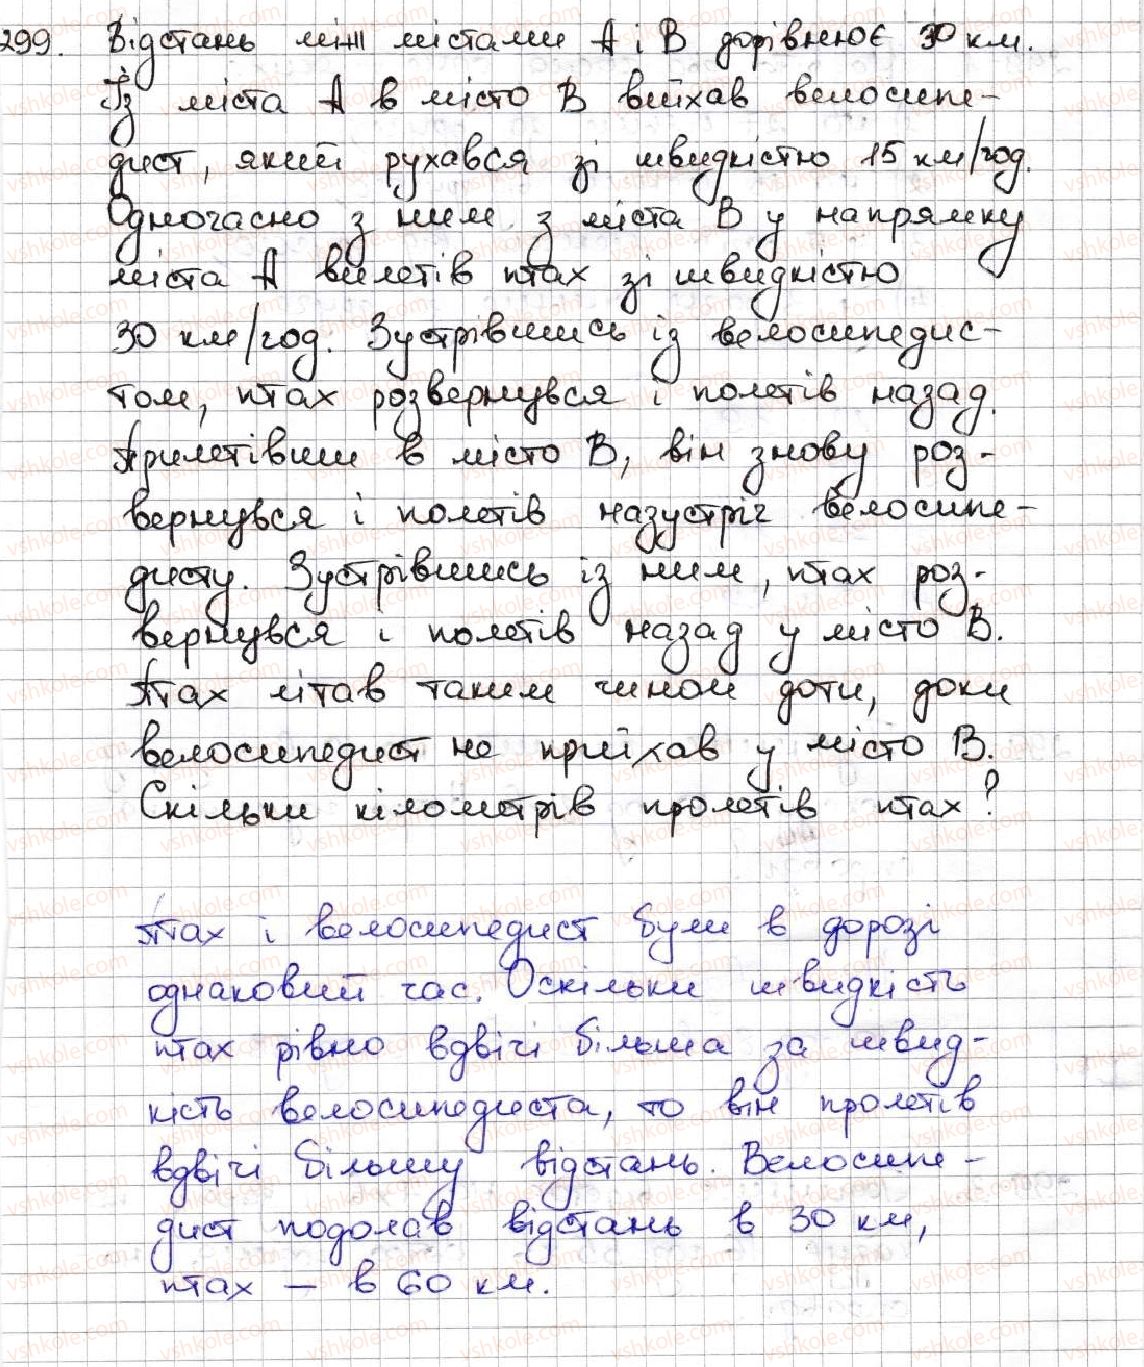 299. Відстань між містами А і В дорівнює 30 км.
Із міста А в місто В виїхав велосипе-
дист, який рухався зі швидкістю 15 км/год.
Одночасно з ним з міста В у напрямку
міста А вилетів птах зі швидкістю
30 км/год. Зустрівшись із велосипедис-
том, птах розвернувся і полетів назад.
Прилетівши в місто В, він знову роз-
вернувся і полетів назустріч велосипе-
дисту. Зустрівшись із ним, птах роз-
вернувся і полетів назад у місто В.
Птах літав таким чином доти, доки
велосипедист не приїхав у місто В.
Скільки кілометрів пролетів птах?
Птах і велосипедист були в дорозі
однаковий час. Оскільки швидкість
птах рівно вдвічі більша за швид-
кість велосипедиста, то він пролетів
вдвічі більшу відстань. Велосипе-
дист подолав відстань в 30 км,
птах — в 60 км.